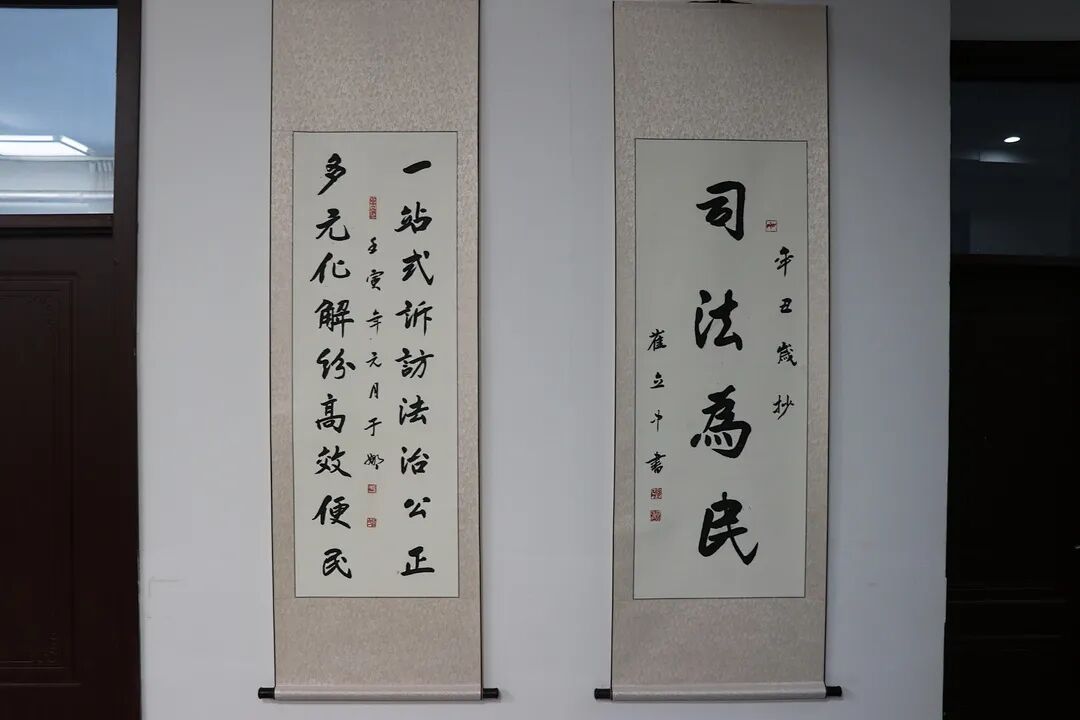 司法為民
辛丑歲抄
崔立中書
一站式訴訪法治公正
多元化解紛高效便民
壬寅年元月于娜